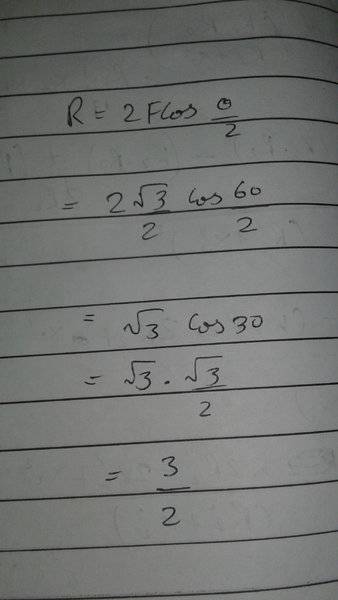 R = 2Fcos θ/2
= 2√3/2 cos 60/2
= √3 cos 30
= √3 . √3/2
= 3/2